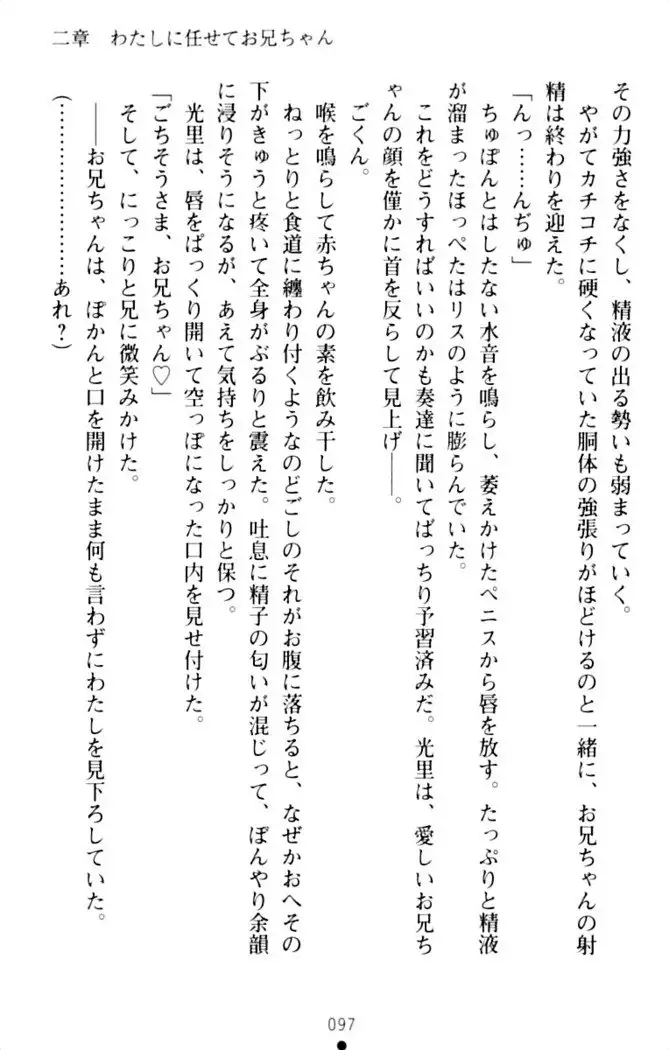 二章　わたしに任せてお兄ちゃん
その力強さをなくし、精液の出る勢いも弱まっていく。
やがてカチコチに硬くなっていた胴体の強張りがほどけるのと一緒に、お兄ちゃんの射
精は終わりを迎えた。
「んっ……んぢゅ」
ちゅぽんとはしたない水音を鳴らし、萎えかけたペニスから唇を放す。たっぷりと精液
が溜まったほっぺたはリスのように膨らんでいた。
これをどうすればいいのかも奏達に聞いてばっちり予習済みだ。光里は、愛しいお兄ち
ゃんの顔を僅かに首を反らして見上げ――。
ごくん。
喉を鳴らして赤ちゃんの素を飲み干した。
ねっとりと食道に纏わり付くようなのどごしのそれがお腹に落ちると、なぜかおへその
下がきゅうと疼いて全身がぶるりと震えた。吐息に精子の匂いが混じって、ぼんやり余韻
に浸りそうになるが、あえて気持ちをしっかりと保つ。
光里は、唇をぱっくり開いて空っぽになった口内を見せ付けた。
「ごちそうさま、お兄ちゃん♡」
そして、にっこりと兄に微笑みかけた。
――お兄ちゃんは、ぽかんと口を開けたまま何も言わずにわたしを見下ろしていた。
（……………………あれ？）
097